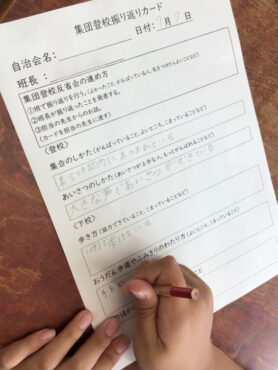 集団登校振り返りカード
日付:　月　日
自治会名:
班長:
集団登校反省会の進め方
①班で振り返りを行う。(よかったこと、がんばっている人、気をつけたいことなど)
②班長が振り返ったことを発表する。
③担当の先生からのお話。
(カードを担当の先生に渡す)
〈登校〉
集合のしかた(がんばっていること、よいところ、こまっていることなど)
集合時間内にあつまれている
あいさつのしかた(あいさつが上手な人、もっとがんばりたいことなど)
大きな声であいさつができている
〈下校〉
歩き方(協力できていること、こまっていることなど)
歩けている
おうだん歩道やふみきりのわたり方(よいところ、こまっていること)